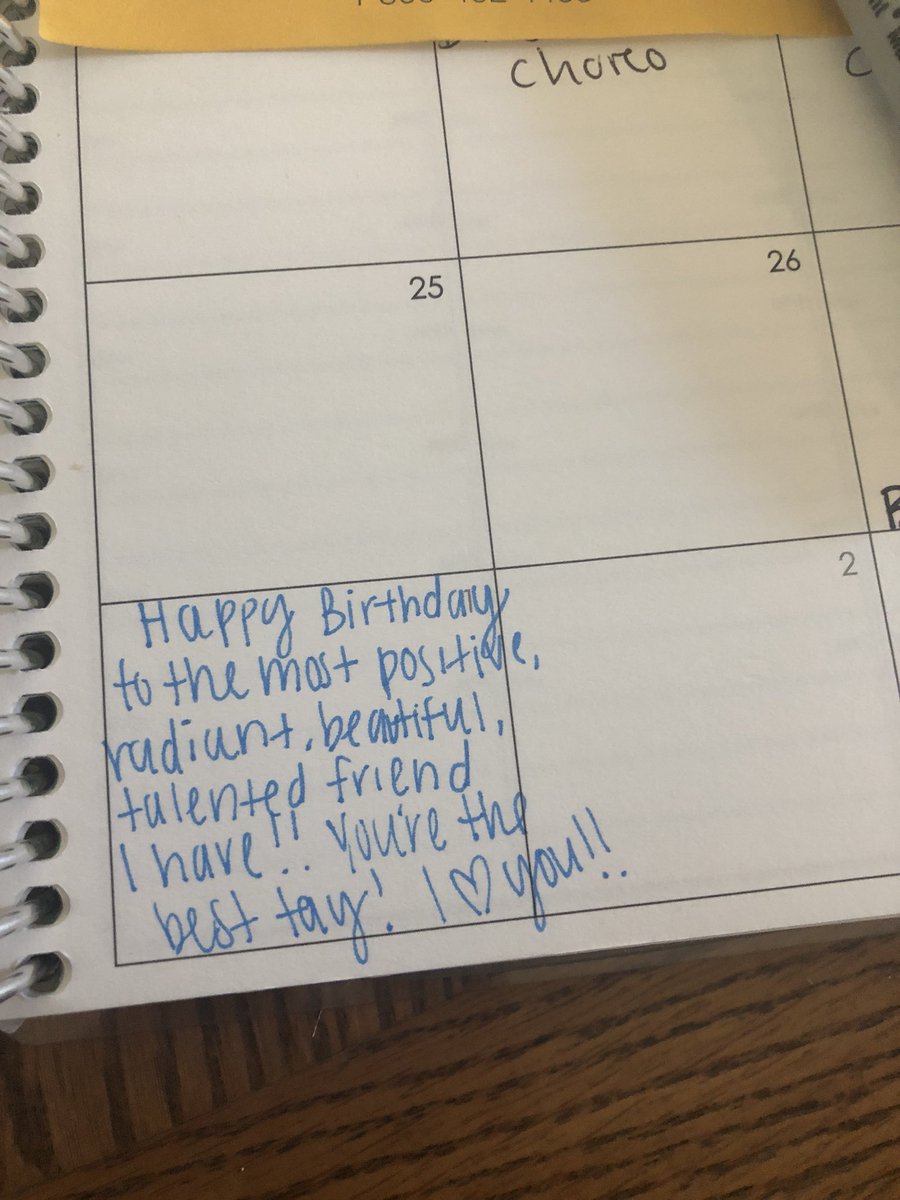 choreo
C
25
26
2
Happy Birthday
to the most positive,
radiant, beautiful,
talented friend
I have!! You're the
best tay! I ♡ you!!